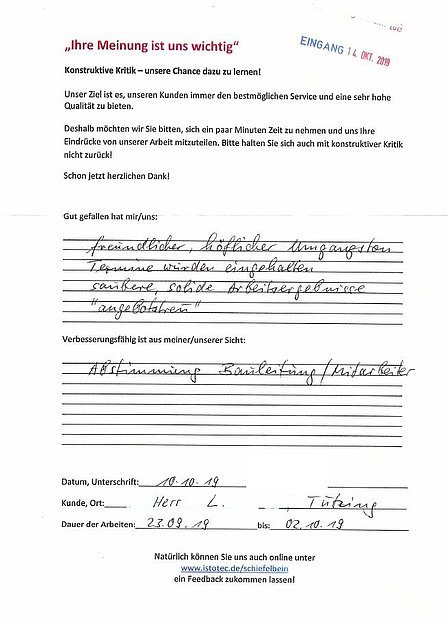 „Ihre Meinung ist uns wichtig“
EINGANG 14. OKT. 2019
Konstruktive Kritik – unsere Chance dazu zu lernen!
Unser Ziel ist es, unseren Kunden immer den bestmöglichen Service und eine sehr hohe
Qualität zu bieten.
Deshalb möchten wir Sie bitten, sich ein paar Minuten Zeit zu nehmen und uns Ihre
Eindrücke von unserer Arbeit mitzuteilen. Bitte halten Sie sich auch mit konstruktiver Kritik
nicht zurück!
Schon jetzt herzlichen Dank!
Gut gefallen hat mir/uns:
freundlicher, höflicher Umgangston
Termine wurden eingehalten
saubere, solide Arbeitsergebnisse
"angebotstreu"
Verbesserungsfähig ist aus meiner/unserer Sicht:
Abstimmung Bauleitung/Mitarbeiter
Datum, Unterschrift: 10.10.19
Kunde, Ort: Herr L. , Tutzing
Dauer der Arbeiten: 23.09.19 bis: 02.10.19
Natürlich können Sie uns auch online unter
www.istotec.de/schiefelbein
ein Feedback zukommen lassen!